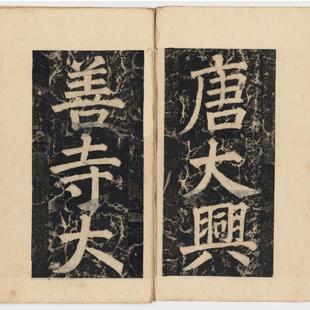 唐大興
善寺大